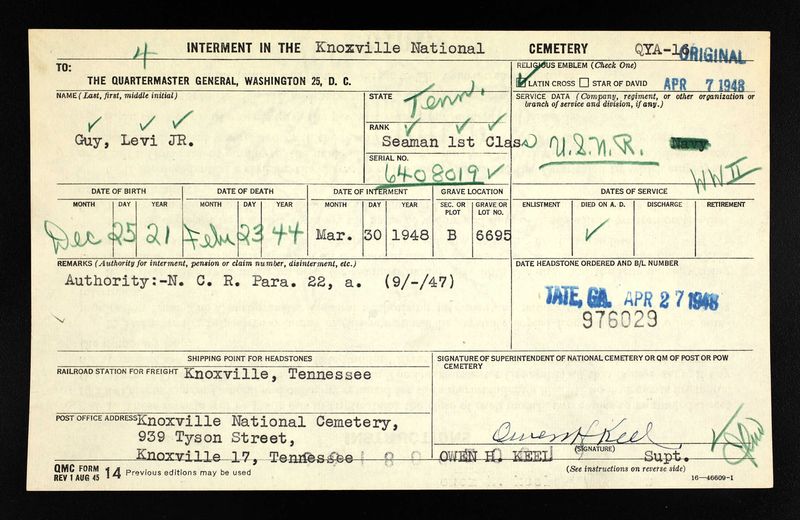 4 INTERMENT IN THE Knoxville National CEMETERY QYA-16 ORIGINAL
TO:
THE QUARTERMASTER GENERAL, WASHINGTON 25, D. C.
RELIGIOUS EMBLEM (Check One)
✓ LATIN CROSS ☐ STAR OF DAVID APR 7 1948
NAME (Last, first, middle initial)
Guy, Levi JR.
STATE Tenn.
RANK
Seaman 1st Class
SERIAL NO.
6408019 ✓
SERVICE DATA (Company, regiment, or other organization or
branch of service and division, if any.)
U.S.N.R. Navy
WW II
DATE OF BIRTH DATE OF DEATH DATE OF INTERMENT GRAVE LOCATION DATES OF SERVICE
MONTH DAY YEAR MONTH DAY YEAR MONTH DAY YEAR SEC. OR PLOT GRAVE OR LOT NO. ENLISTMENT DIED ON A. D. DISCHARGE RETIREMENT
Dec 25 21 Feb 23 44 Mar. 30 1948 B 6695 ✓
REMARKS (Authority for interment, pension or claim number, disinterment, etc.)
Authority:-N. C. R. Para. 22, a. (9/-/47)
DATE HEADSTONE ORDERED AND B/L NUMBER
TATE, GA. APR 27 1948
976029
SHIPPING POINT FOR HEADSTONES
RAILROAD STATION FOR FREIGHT Knoxville, Tennessee
POST OFFICE ADDRESS Knoxville National Cemetery,
939 Tyson Street,
Knoxville 17, Tennessee
SIGNATURE OF SUPERINTENDENT OF NATIONAL CEMETERY OR QM OF POST OR POW
CEMETERY
Owen H Keel
(SIGNATURE)
OWEN H. KEEL Supt.
(See instructions on reverse side)
QMC FORM
REV 1 AUG 45 14 Previous editions may be used
16—46609-1